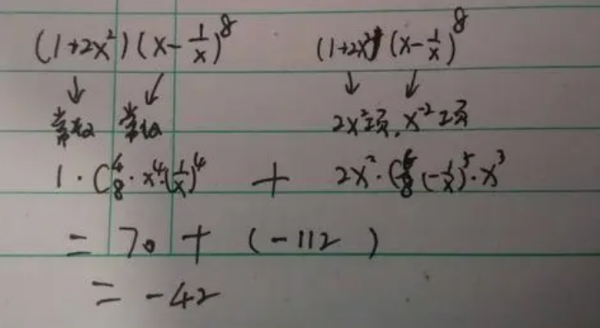 (1+2x²)(x-1/x)⁸ (1+2x²)(x-1/x)⁸
↓ ↙ ↓ ↙
常数 常数 2x²项, x⁻²项
1·C₈⁴·x⁴·(1/x)⁴ + 2x²·C₈⁵(-1/x)⁵·x³
= 70 + (-112)
= -42